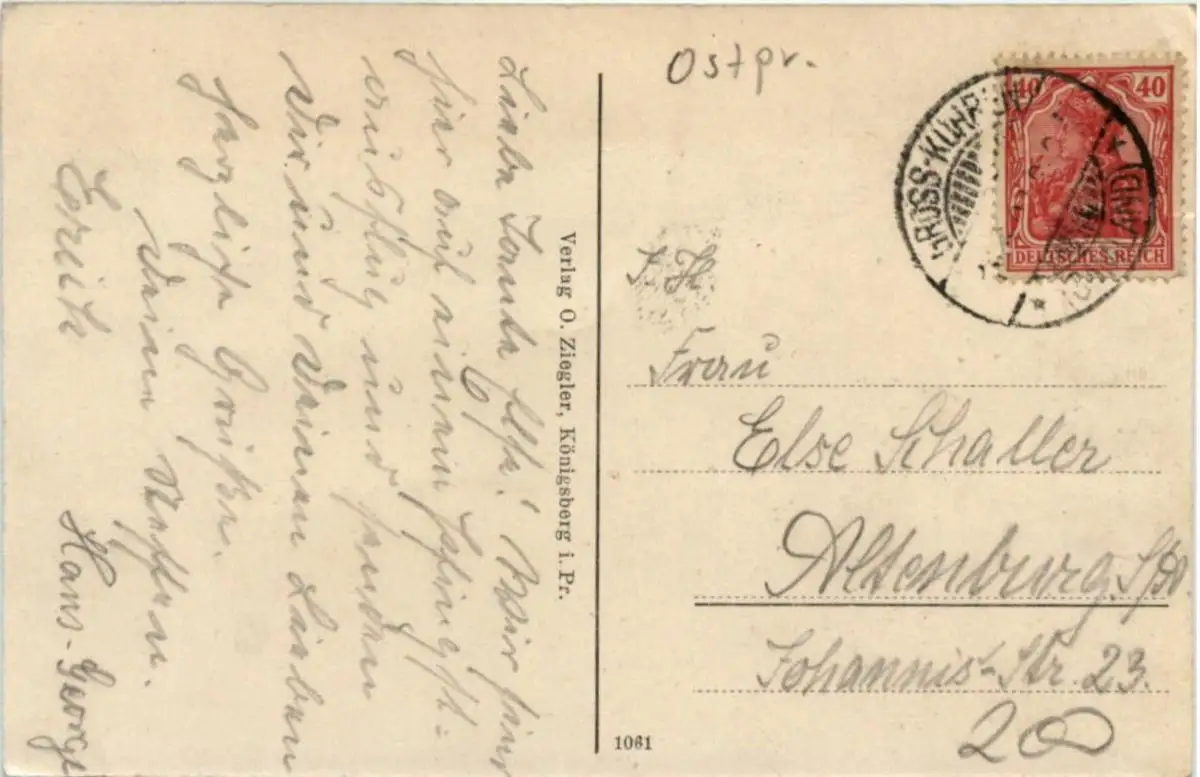 Liebe Tante Else! Wir sind
hier auf einem Pfingst-
ausflug und senden
Dir und Deinen Lieben
herzliche Grüße.
Deine Neffen.
Erich Hans-George
Verlag O. Ziegler, Königsberg i. Pr.
1061
Ostpr.
40 40
DEUTSCHES REICH
GROSS-KUHREN
S. H.
Frau
Else Schaller
Altenburg
Johannis-Str. 23.
200